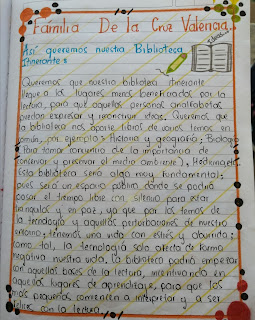 Familia De la Cruz Valencia.
Así queremos nuestra Biblioteca
Itinerante:
Queremos que nuestra biblioteca itinerante
llegue a los lugares menos beneficiados por la
lectura, para que aquellas personas analfabetas
puedan expresar y reconstruir ideas. Queremos que
la biblioteca nos aporte libros de varios temas en
común, por ejemplo: Historia y geografía; Biología
Para tomar conciencia de la importancia de
conservar y preservar el medio ambiente),
esta biblioteca sería algo muy fundamental;
pues sería un espacio público donde se podría
pasar el tiempo libre con silencio para estar
tranquilos y en paz, ya que por los temas de
la tecnología y aquellos perturbaciones de nuestro
entorno; tenemos una vida con estrés y aburrida;
como tal, la tecnología solo afecta de forma
negativa nuestra vida. La biblioteca podrá empezar
con aquellas bases de la lectura, incentivando en
aquellos lugares de aprendizaje, para que los
más pequeños comiencen a interpretar y a ser
felices con la lectura.